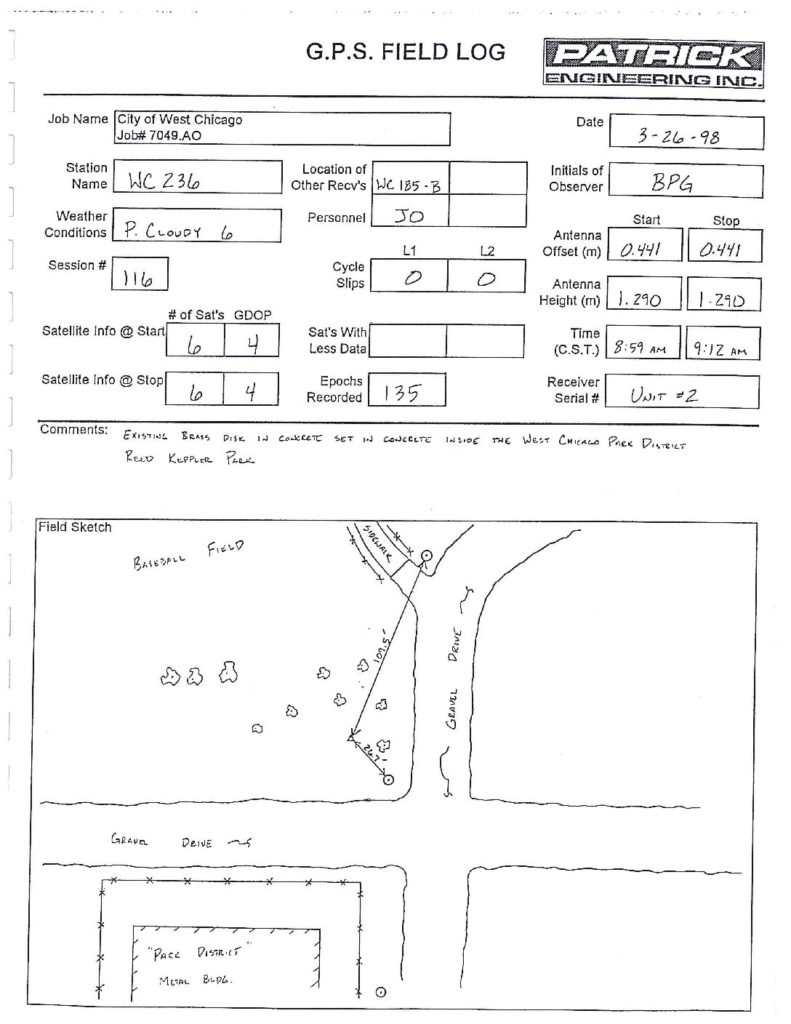 G.P.S. FIELD LOG
PATRICK
ENGINEERING INC.
Job Name
City of West Chicago
Job# 7049.AO
Date
3-26-98
Station Name
WC 236
Location of Other Recv's
WC 185-B
Initials of Observer
BPG
Weather Conditions
P. CLOUDY 6
Personnel
JO
Start Stop
Antenna Offset (m)
0.441 0.441
Session #
116
L1 L2
Cycle Slips
0 0
Antenna Height (m)
1.290 1.290
# of Sat's GDOP
Satellite Info @ Start
6 4
Sat's With Less Data
Time (C.S.T.)
8:59 AM 9:12 AM
Satellite Info @ Stop
6 4
Epochs Recorded
135
Receiver Serial #
UNIT #2
Comments: EXISTING BRASS DISK IN CONCRETE SET IN CONCRETE INSIDE THE WEST CHICAGO PARK DISTRICT
REED KEPPLER PARK
Field Sketch
BASEBALL FIELD
SIDEWALK
109.5'
GRAVEL DRIVE
26.7'
GRAVEL DRIVE
"PARK DISTRICT"
METAL BLDG.